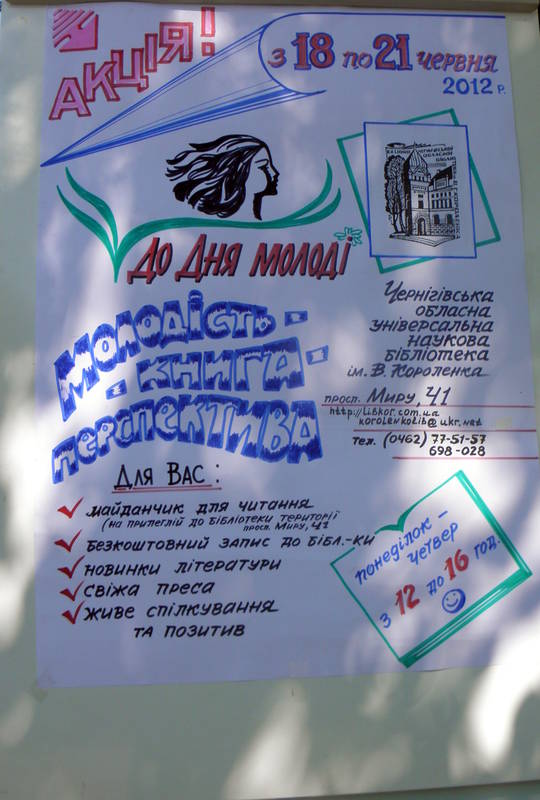 АКЦІЯ!
з 18 по 21 червня
2012 р.
До Дня молоді
Чернігівська
обласна
універсальна
наукова
бібліотека
ім. В. Короленка
просп. Миру, 41
http://libkor.com.ua
korolenkolib@ukr.net
тел. (0462) 77-51-57
698-028
Молодість -
- книга -
перспектива
Для Вас:
майданчик для читання
(на прилеглій до бібліотеки території
просп. Миру, 41
безкоштовний запис до бібл.-ки
новинки літератури
свіжа преса
живе спілкування
та позитив
понеділок -
четвер
з 12 до 16 год.